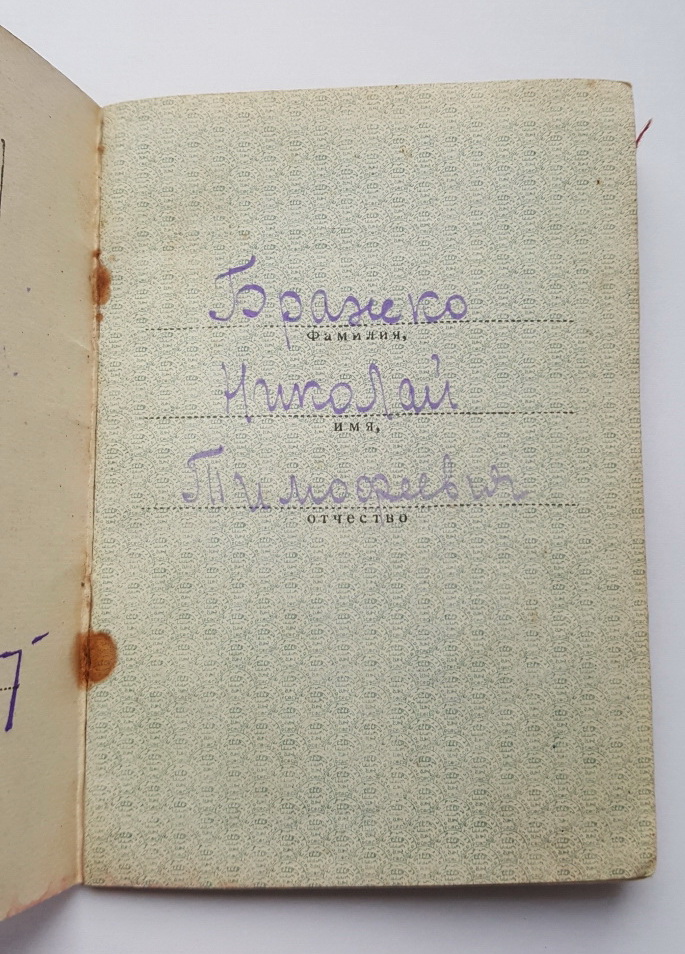 Бражко
Фамилия,
Николай
имя,
Тимофеевич
отчество
7